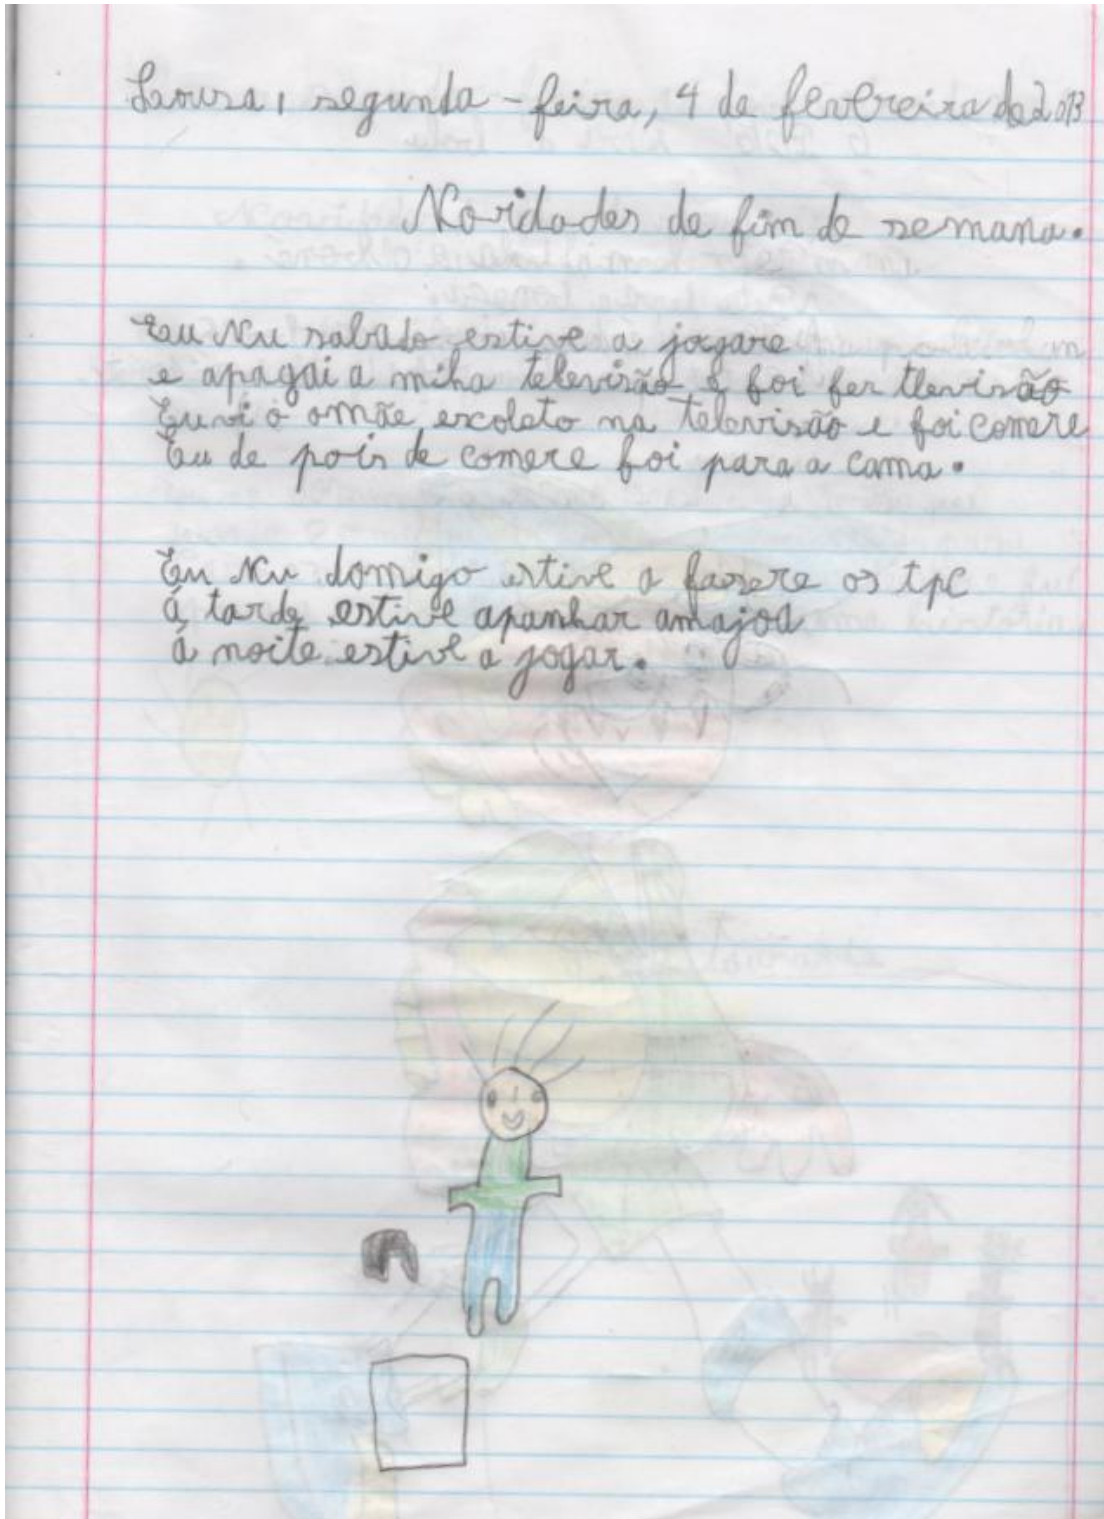 Lousa, segunda-feira, 4 de fevereiro de 2013
Novidades de fim de semana.
Eu Nu sabado estive a jogare
e apagai a miha televisão e foi fer tlevisão
Eu vi o omãe escoleto na televisão e foi comere
Eu de pois de comere foi para a cama.
Eu Nu domigo estive a fasere os tpc
á tarde estive apanhar amajoa
á noite estive a jogar.